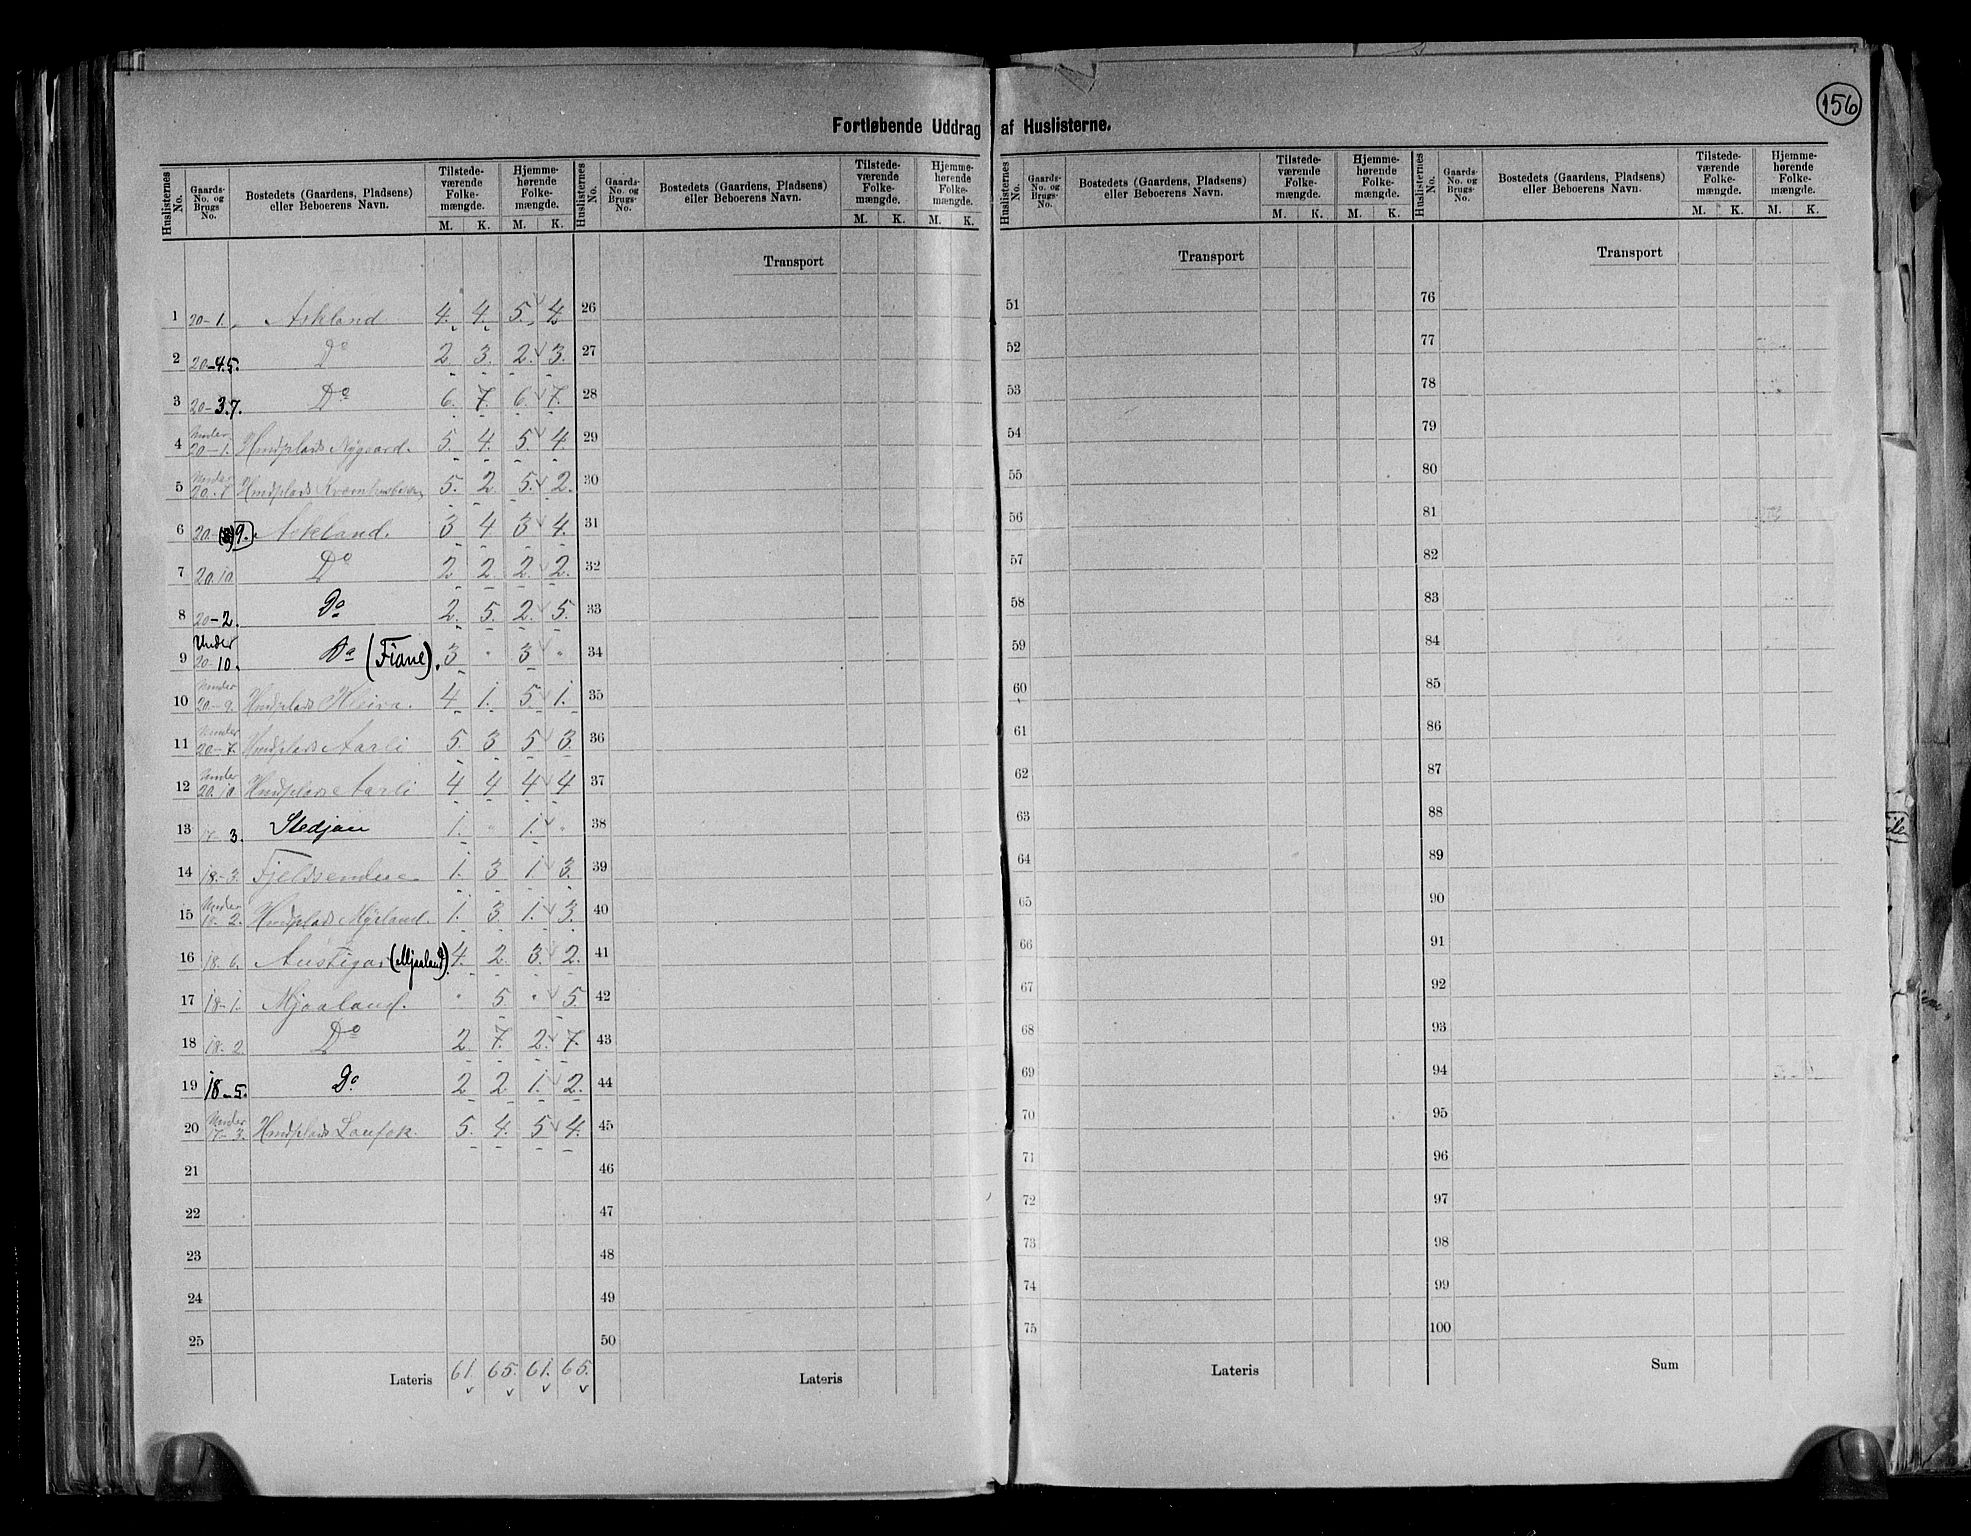 156
Fortløbende Uddrag af Huslisterne.
Huslisternes No. | Gaards-No. og Brugs No. | Bostedets (Gaardens, Pladsens) eller Beboerens Navn. | Tilstedeværende Folkemængde. M. K. | Hjemmehørende Folkemængde. M. K.
Huslisternes No. | Gaards-No. og Brugs-No. | Bostedets (Gaardens, Pladsens) eller Beboerens Navn. | Tilstedeværende Folkemængde. M. K. | Hjemmehørende Folkemængde. M. K.
Huslisternes No. | Gaards-No. og Brugs-No. | Bostedets (Gaardens, Pladsens) eller Beboerens Navn. | Tilstedeværende Folkemængde. M. K. | Hjemmehørende Folkemængde. M. K.
Huslisternes No. | Gaards-No. og Brugs-No. | Bostedets (Gaardens, Pladsens) eller Beboerens Navn. | Tilstedeværende Folkemængde. M. K. | Hjemmehørende Folkemængde. M. K.
Transport Transport Transport
1 20-1. Askland 4. 4. 5. 4. 26 51 76
2 20-4.5. Do 2. 3. 2. 3. 27 52 77
3 20-3.7. Do 6. 7. 6. 7. 28 53 78
4 Under 20-1. Husplads Nygaard. 5. 4. 5. 4. 29 54 79
5 Under 20.7 Husplads 5. 2. 5. 2. 30 55 80
6 20-(8) 9. Askland. 3 4. 3 4. 31 56 81
7 20.10 Do 2 2. 2. 2. 32 57 82
8 20-2. Do 2. 5. 2. 5. 33 58 83
9 Under 20-10. Do (Fiane). 3 " 3 " 34 59 84
10 Under 20-9. Husplads Kleiva. 4 1. 5. 1. 35 60 85
11 Under 20-7. Husplads Aarli 5. 3 5 3. 36 61 86
12 Under 20.10 Husplads Aarli 4 4 4 4 37 62 87
13 17-3. Stedjan 1. " 1. " 38 63 88
14 18.-3. Fjeldsendene 1. 3 1. 3. 39 64 89
15 Under 18-2. Husplads Myrland. 1. 3. 1. 3. 40 65 90
16 18.6. Austigar (Mjaaland). 4. 2. 3. 2. 41 66 91
17 18-1. Mjaaland. " 5. " 5 42 67 92
18 18.2. Do 2. 7. 2. 7. 43 68 93
19 18-5. Do. 2 2. 1. 2. 44 69 94
20 Under 17-3. Husplads Laufok. 5. 4. 5 4. 45 70 95
21 46 71 96
22 47 72 97
23 48 73 98
24 49 74 99
25 50 75 100
Lateris 61. 65. 61. 65. Lateris Lateris Sum